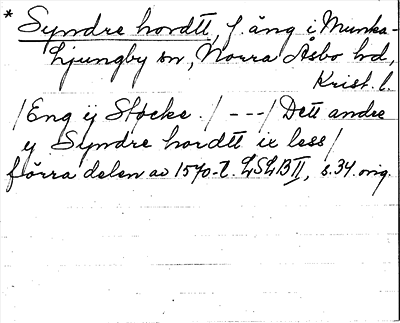 * Syndre hordtt, f. äng i Munka-
Ljungby sn, Norra Åsbo hd,
Krist. l.
/Eng ij Stocke./ --- / Dett andre
y Syndre hordtt ix less/
förra delen av 1570-t. LSLB II, s. 34. orig.